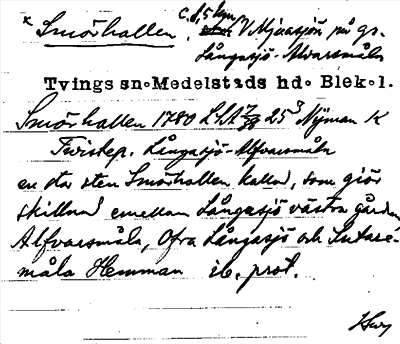 K Smörhallen, c. 1,5 km V Mjuasjön på gr.
Långasjö-Alvarsmåla
Tvings sn. Medelstads hd. Blek. l.
Smörhallen 1780 LSA 25³ Nyman K
Tvistep. Långasjö-Alfvarsmåla
en stor sten Smörhallen kallad, som giör
skillnad emellan Långasjö västra gården
Alfvarsmåla, Öfra Långasjö och Sutare-
måla Hemman ib. prot.